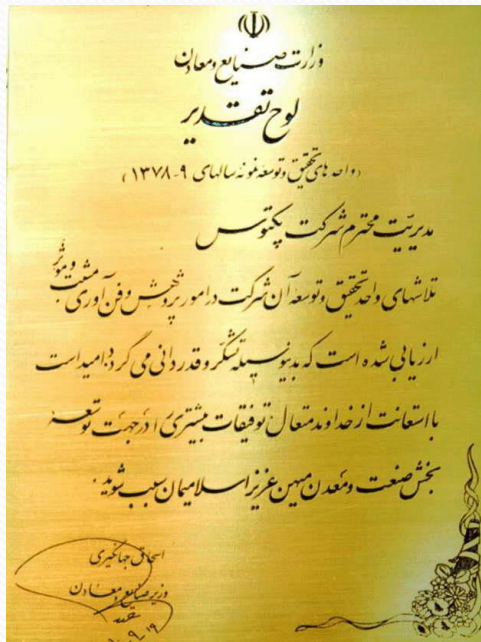 وزارت صنایع و معادن
لوح تقدیر
(واحد های تحقیق و توسعه نمونه سالهای ۹-۱۳۷۸)
مدیریت محترم شرکت پکتوس
تلاشهای واحد تحقیق و توسعه آن شرکت در امور پژوهش و فن آوری مثبت و موثر
ارزیابی شده است که بدینوسیله تشکر و قدردانی می گردد، امید است
با استعانت از خداوند متعال توفیقات بیشتری را در جهت توسعه
بخش صنعت و معدن میهن عزیز اسلامیمان سبب شوید.
اسحاق جهانگیری
وزیر صنایع و معادن